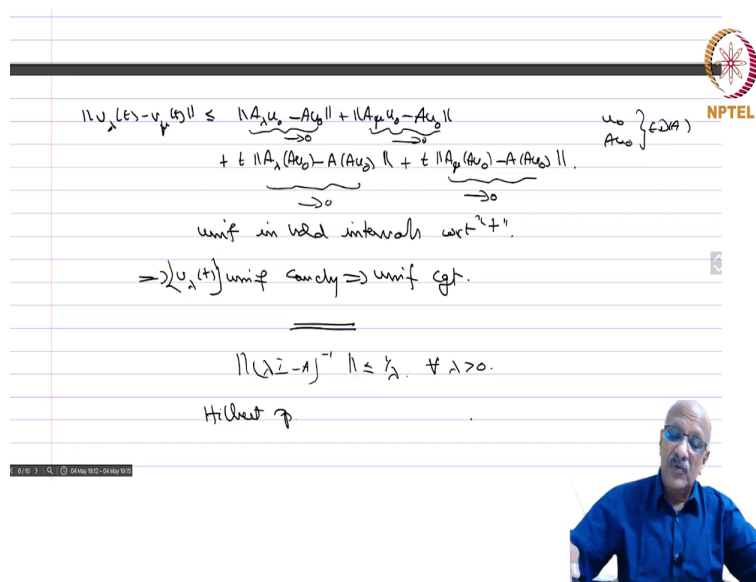 NPTEL
||v_λ(t) - v_μ(t)|| ≤ ||A_λ u_0 - Au_0|| + ||A_μ u_0 - Au_0||
→0 →0
u_0
Au_0 } ∈ D(A)
+ t ||A_λ(Au_0) - A(Au_0)|| + t ||A_μ(Au_0) - A(Au_0)||.
→0 →0
unif in bdd intervals wrt "t".
⇒ {v_λ(t)} unif cauchy ⇒ unif cgt.
||(λI - A)^{-1}|| ≤ 1/λ. ∀ λ>0.
Hilbert sp.
6 / 10 04 May 19:12-04 May 19:15